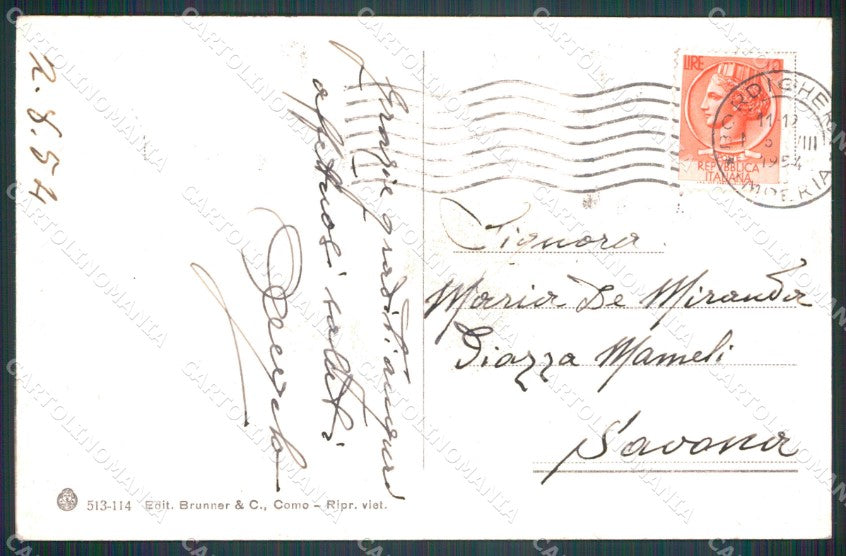 2.8.54
Grazie graditi auguri
affettuosi saluti
LIRE 10
REPUBBLICA
ITALIANA
BORDIGHERA
11-12
VIII
1954
IMPERIA
Signora
Maria De Miranda
Piazza Mameli
Savona
513-114 Edit. Brunner & C., Como – Ripr. viet.
CARTOLINOMANIA